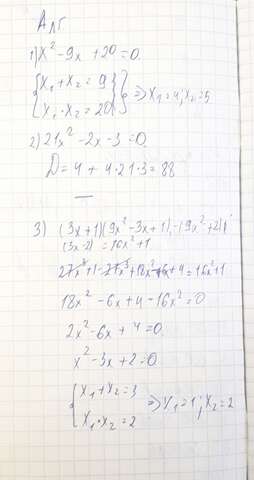 Алг
1) x² - 9x + 20 = 0.
{ x₁ + x₂ = 9
{ x₁ · x₂ = 20 } => x₁ = 4; x₂ = 5
2) 21x² - 2x - 3 = 0
D = 4 + 4·21·3 = 88
—
3) (3x + 1)(9x² - 3x + 1) - (9x² + 2)·
(3x - 2) = 16x² + 1
27x³ + 1 - 27x³ + 18x² - 6x + 4 = 16x² + 1
18x² - 6x + 4 - 16x² = 0
2x² - 6x + 4 = 0
x² - 3x + 2 = 0
{ x₁ + x₂ = 3
{ x₁ · x₂ = 2 => x₁ = 1; x₂ = 2